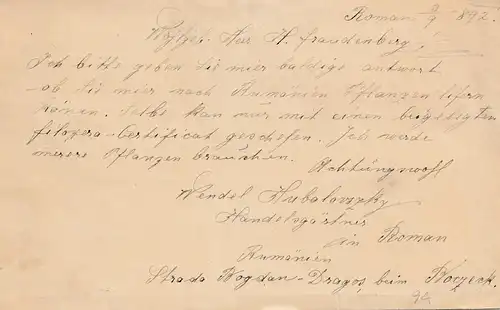 Roman 9/9 892.
Wohlgeb. Herr H. fraudenberg,
Ich bitte geben Sie mier baldige antwort
ob Sie mier nach Rumänien Pflanzen lifern
könen. Selbe kan nur mit einen beigelegten
filoxera-Certificat geschefen. Ich werde
merere Pflanzen brauchen.
Achtungsvohl
Wendel Hubalovzky
Handelsgärtner
in Roman
Rumänien
Strada Bogdan-Dragos, beim
94